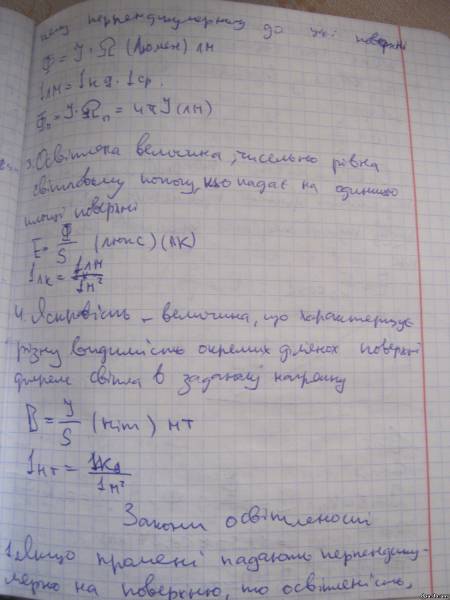 перпендикулярну до цієї поверхні
Ф = J · Ω (Люмен) лм
1лм = 1кд · 1ср.
Фп = J · Ωп = 4πJ (лм)
3. Освітлена величина, чисельно рівна
світловому потоку, що падає на одиницю
площі поверхні
E = Ф/S (люкс) (лк)
1лк = 1лм/1м²
4. Яскравість – величина, що характеризує
різну видимість окремих ділянок поверхні
джерел світла в заданому напрямку
B = J/S (ніт) нт
1нт = 1кд/1м²
Закони освітленості
1. Якщо промені падають перпендику-
лярно на поверхню, то освітленість,